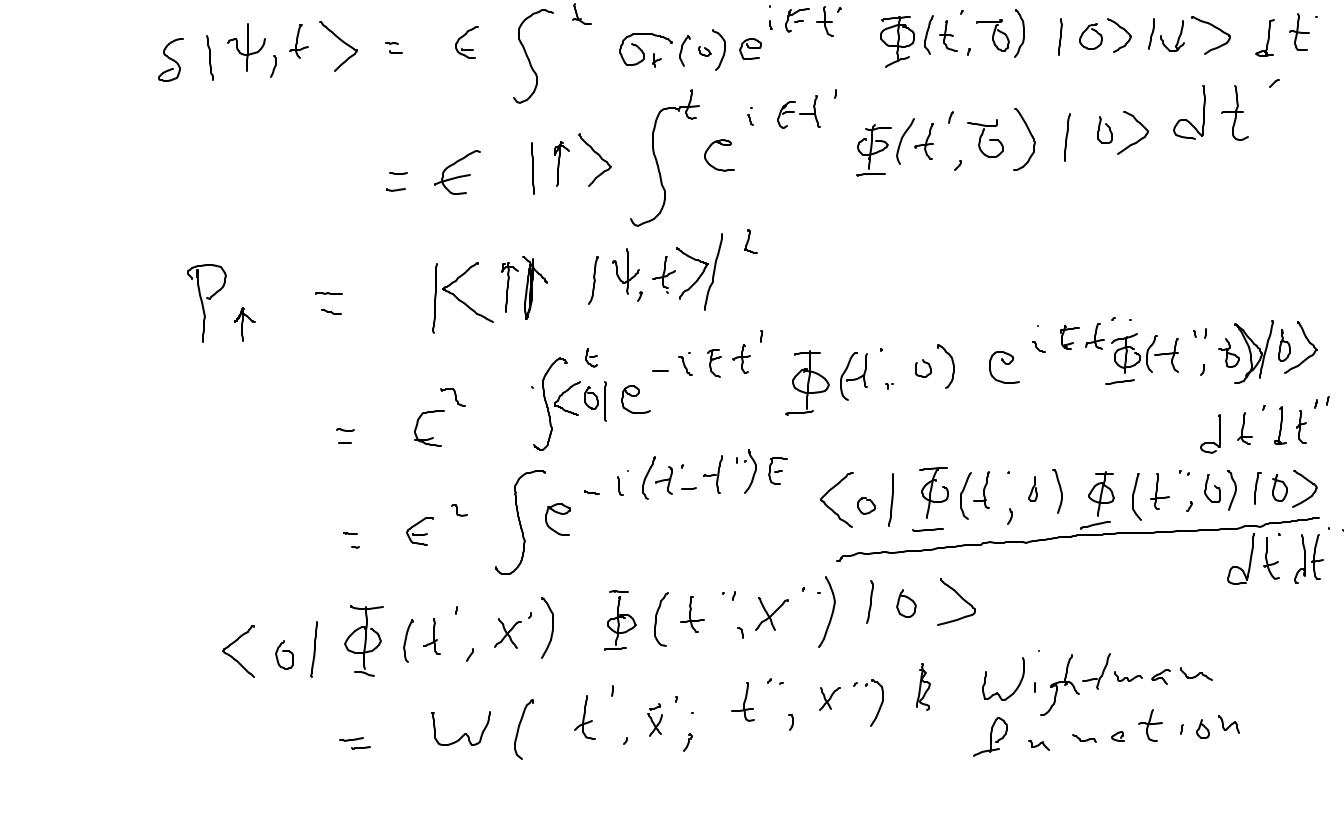 δ|Ψ,t> = ε ∫^t σ₊(0) e^{iEt'} Φ(t',0) |0>|↓> dt'
= ε |↑> ∫^t e^{iEt'} Φ(t',0) |0> dt'
P_↑ = |<↑| |Ψ,t>|²
= ε² ∫^t <0| e^{-iEt'} Φ(t',0) e^{iEt''} Φ(t'',0) |0> dt' dt''
= ε² ∫ e^{-i(t'-t'')E} <0| Φ(t',0) Φ(t'',0) |0> dt' dt''
<0| Φ(t',x') Φ(t'',x'') |0>
= W(t',x'; t'',x'') Wightman
function